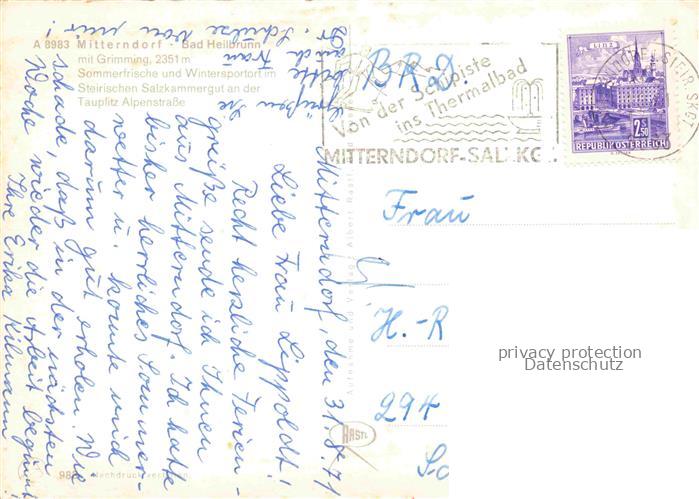 A 8983 Mitterndorf - Bad Heilbrunn
mit Grimming, 2351 m
Sommerfrische und Wintersportort im
Steirischen Salzkammergut an der
Tauplitz Alpenstraße
Mitterndorf, den 31.8.71
Liebe Frau Lippoldt!
Recht herzliche Ferien-
grüße sende ich Ihnen
aus Mitterndorf. Ich hatte
bisher herrliches Sommer-
wetter u. konnte mich
darum gut erholen. Wie
schade, daß in der nächsten
Woche wieder die Arbeit beginnt
Ihre Erika Kilmann
Grüßen Sie
bitte Frau
Schulze von mir!
BRD
Von der Schipiste
ins Thermalbad
MITTERNDORF-SALZKG.
LINZ
2.50
REPUBLIK ÖSTERREICH
Frau
H.-R
294
privacy protection
Datenschutz
RASTL
Nachdruck verboten